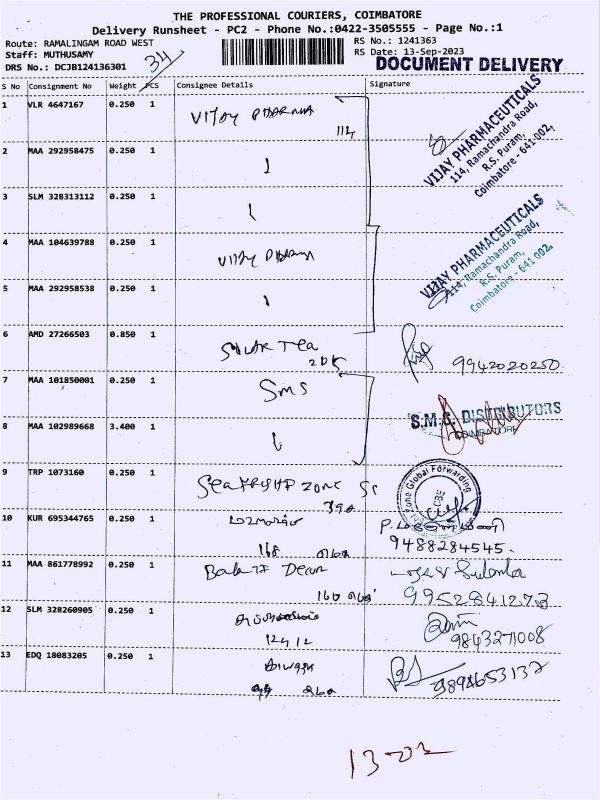 THE PROFESSIONAL COURIERS, COIMBATORE
Delivery Runsheet - PC2 - Phone No.:0422-3505555 - Page No.:1
Route: RAMALINGAM ROAD WEST
RS No.: 1241363
Staff: MUTHUSAMY
RS Date: 13-Sep-2023
DRS No.: DCJB124136301
34
DOCUMENT DELIVERY
S No Consignment No Weight PCS Consignee Details Signature
1 VLR 4647167 0.250 1 Vijay Pharma
114
VIJAY PHARMACEUTICALS
114, Ramachandra Road,
R.S. Puram,
Coimbatore - 641 002.
2 MAA 292958475 0.250 1
3 SLM 328313112 0.250 1
4 MAA 104639788 0.250 1 Vijay Pharma
VIJAY PHARMACEUTICALS
114, Ramachandra Road,
R.S. Puram,
Coimbatore - 641 002.
5 MAA 292958538 0.250 1
6 AMD 27266503 0.850 1 Tea
9942020250
7 MAA 101850001 0.250 1 SMS
S.M.S. DISTRIBUTORS
COIMBATORE
8 MAA 102989668 3.400 1
9 TRP 1073160 0.250 1 Zone
Zone Global Forwarding
CBE
10 KUR 695344765 0.250 1
168
9488284545.
11 MAA 861778992 0.250 1
160
9952841273
12 SLM 328260905 0.250 1
1212
9843271008
13 EDQ 18083205 0.250 1
9894653132
13-02